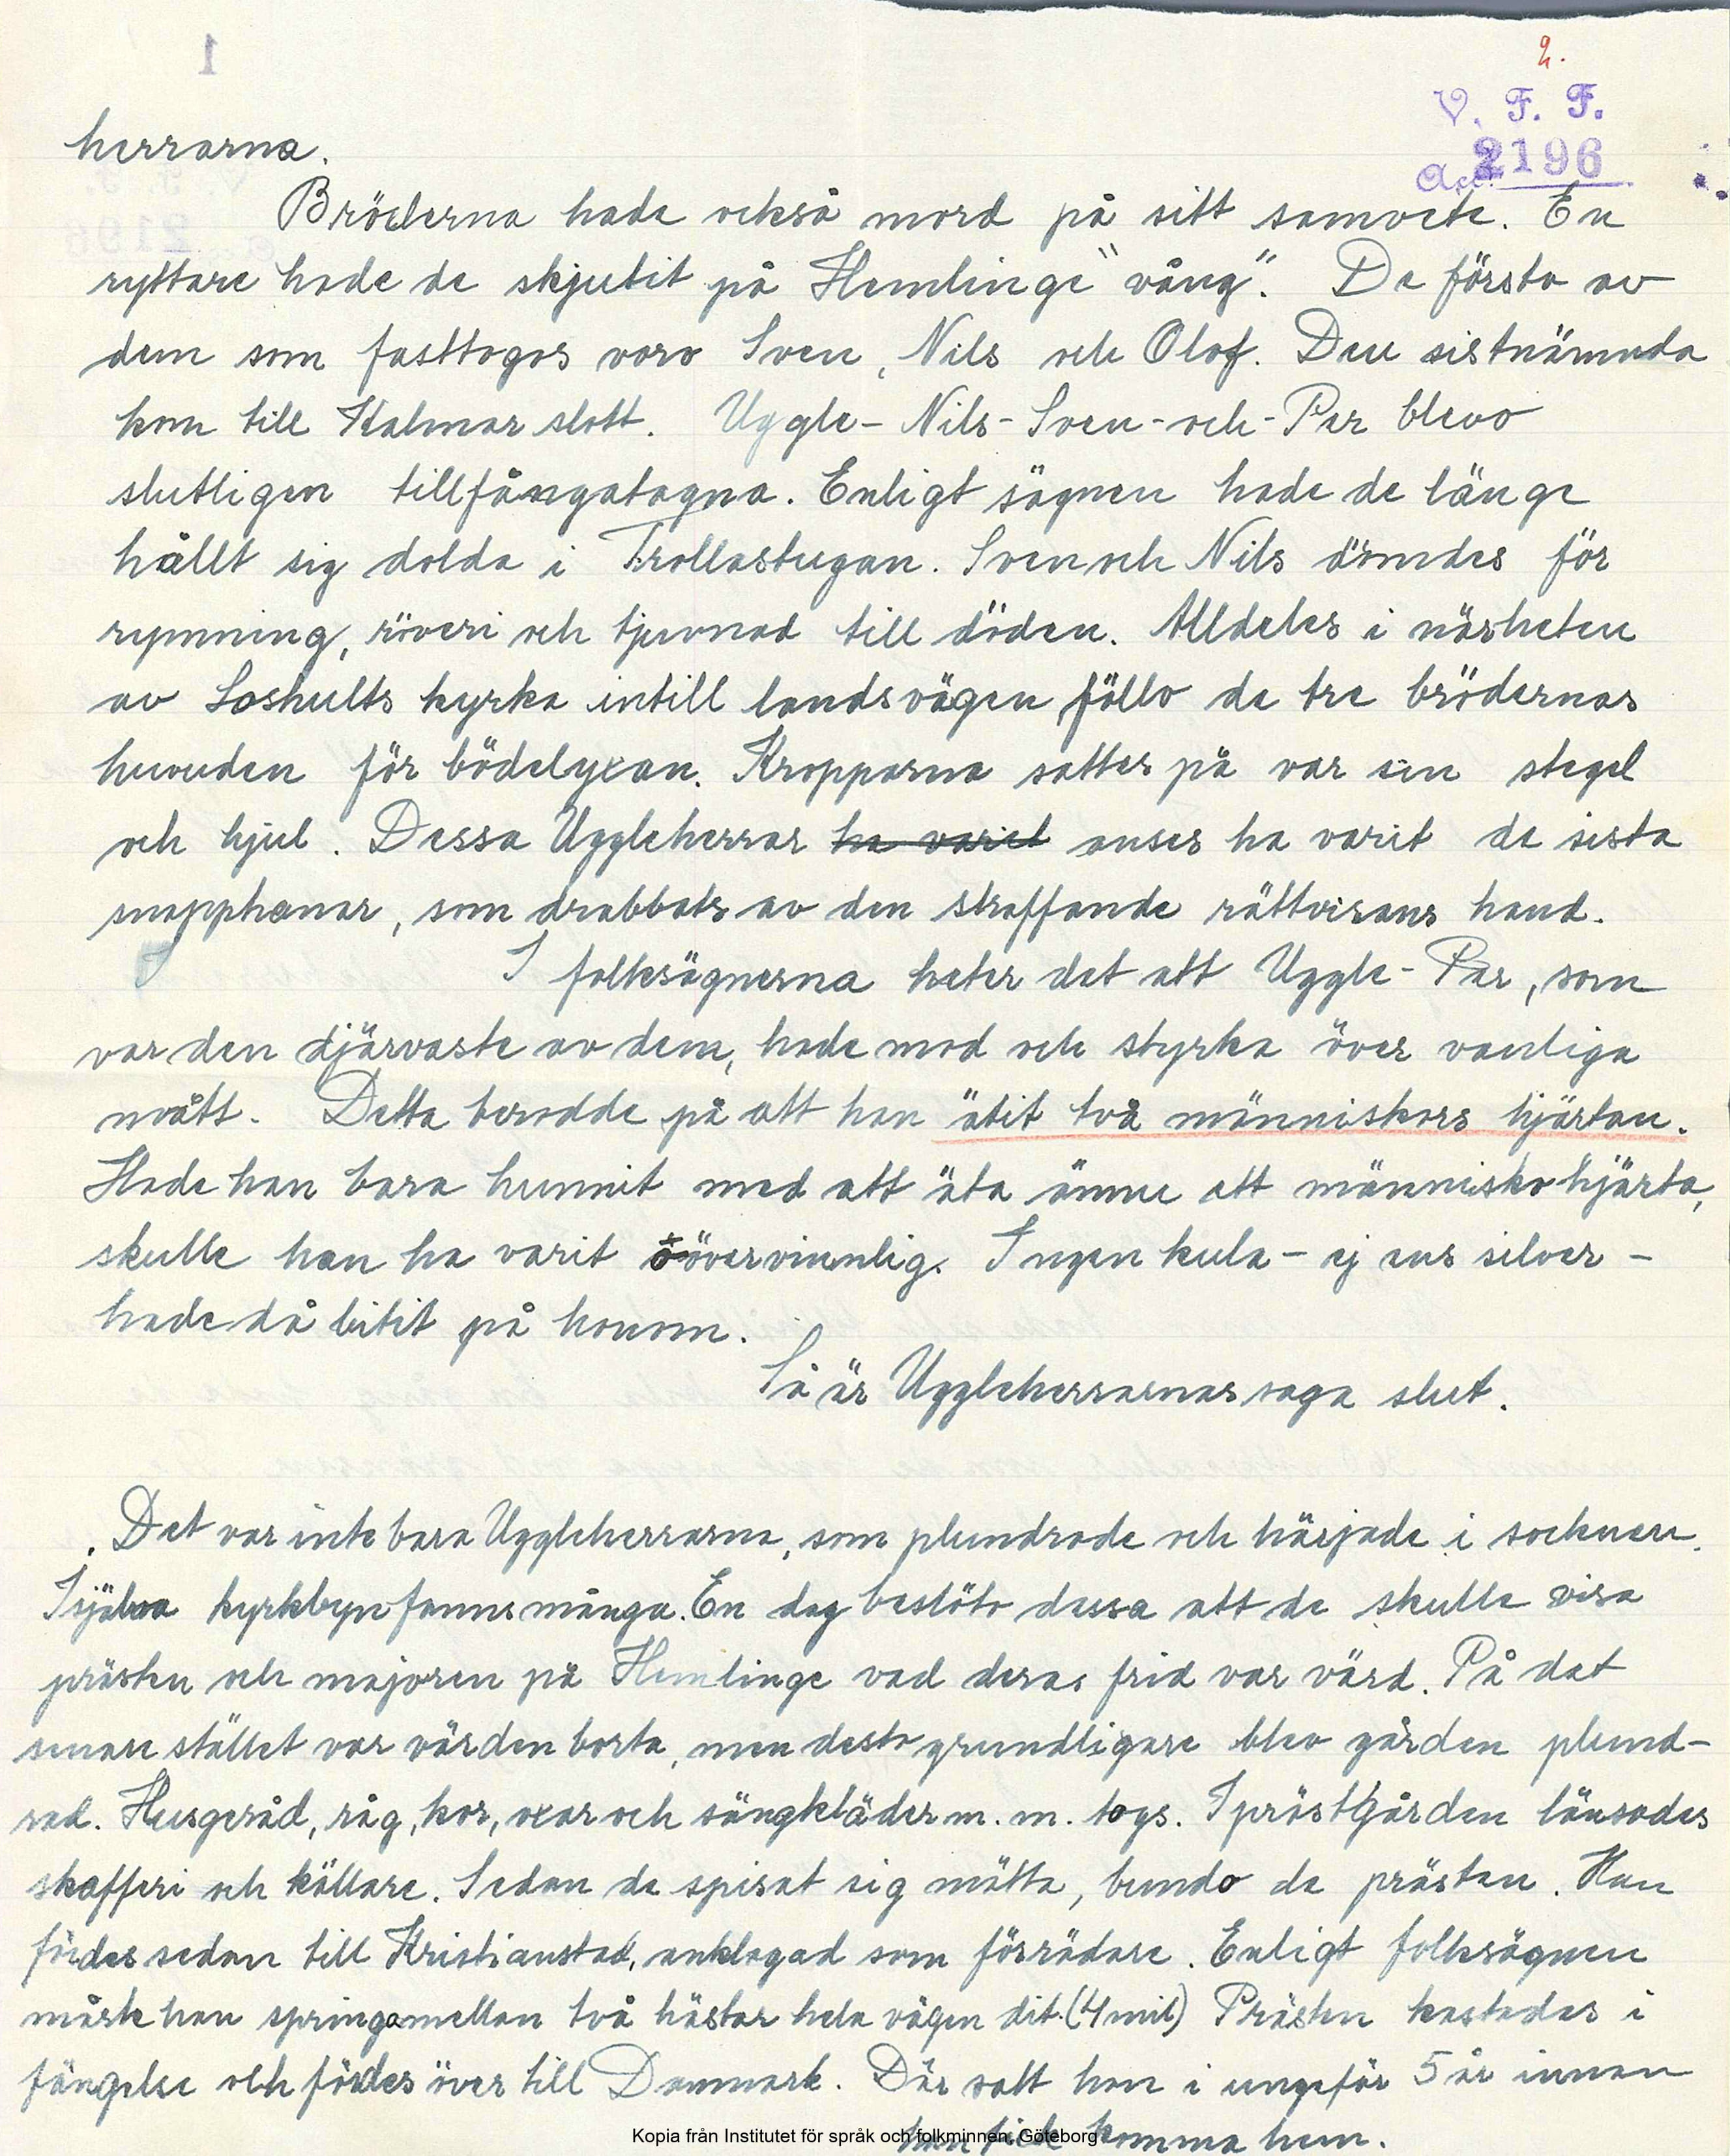 2.
V. F. F.
Acc. 2196
herrarna.
Bröderna hade också mord på sitt samvete. En
ryttare hade de skjutit på Hemlinge "vång". De första av
dem som fasttogos voro Sven, Nils och Olof. Den sistnämnda
kom till Kalmar slott. Uggle-Nils-Sven-och-Per blevo
slutligen tillfångatagna. Enligt sägnen hade de länge
hållt sig dolda i Trollastugan. Sven och Nils dömdes för
rymning, röveri och tjuvnad till döden. Alldeles i närheten
av Loshults kyrka intill landsvägen föllo de tre brödernas
huvuden för bödelyxan. Kropparna sattes på var sin stegel
och hjul. Dessa Uggleherrar ha varit anses ha varit de sista
snapphanar, som drabbats av den straffande rättvisans hand.
I folksägnerna heter det att Uggle-Per, som
var den djärvaste av dem, hade mod och styrka över vanliga
mått. Detta berodde på att han ätit två människors hjärtan.
Hade han bara hunnit med att äta ännu ett människohjärta,
skulle han ha varit oövervinnlig. Ingen kula - ej ens silver -
hade då bitit på honom.
Så är Uggleherrarnas saga slut.
Det var inte bara Uggleherrarna, som plundrade och härjade i socknen.
I själva kyrkbyn fanns många. En dag beslöto dessa att de skulle visa
prästen och majoren på Hemlinge vad deras frid var värd. På det
senare stället var värden borta, men desto grundligare blev gården plund-
rad. Husgeråd, råg, kor, oxar och sängkläder m. m. togs. I prästgården länsades
skafferi och källare. Sedan de spisat sig mätta, bundo de prästen. Han
fördes sedan till Kristianstad, anklagad som förrädare. Enligt folksägnen
måste han springa mellan två hästar hela vägen dit. (4 mil) Prästen kastades i
fängelse och fördes över till Danmark. Där satt han i ungefär 5 år innan
han fick komma hem.
Kopia från Institutet för språk och folkminnen, Göteborg